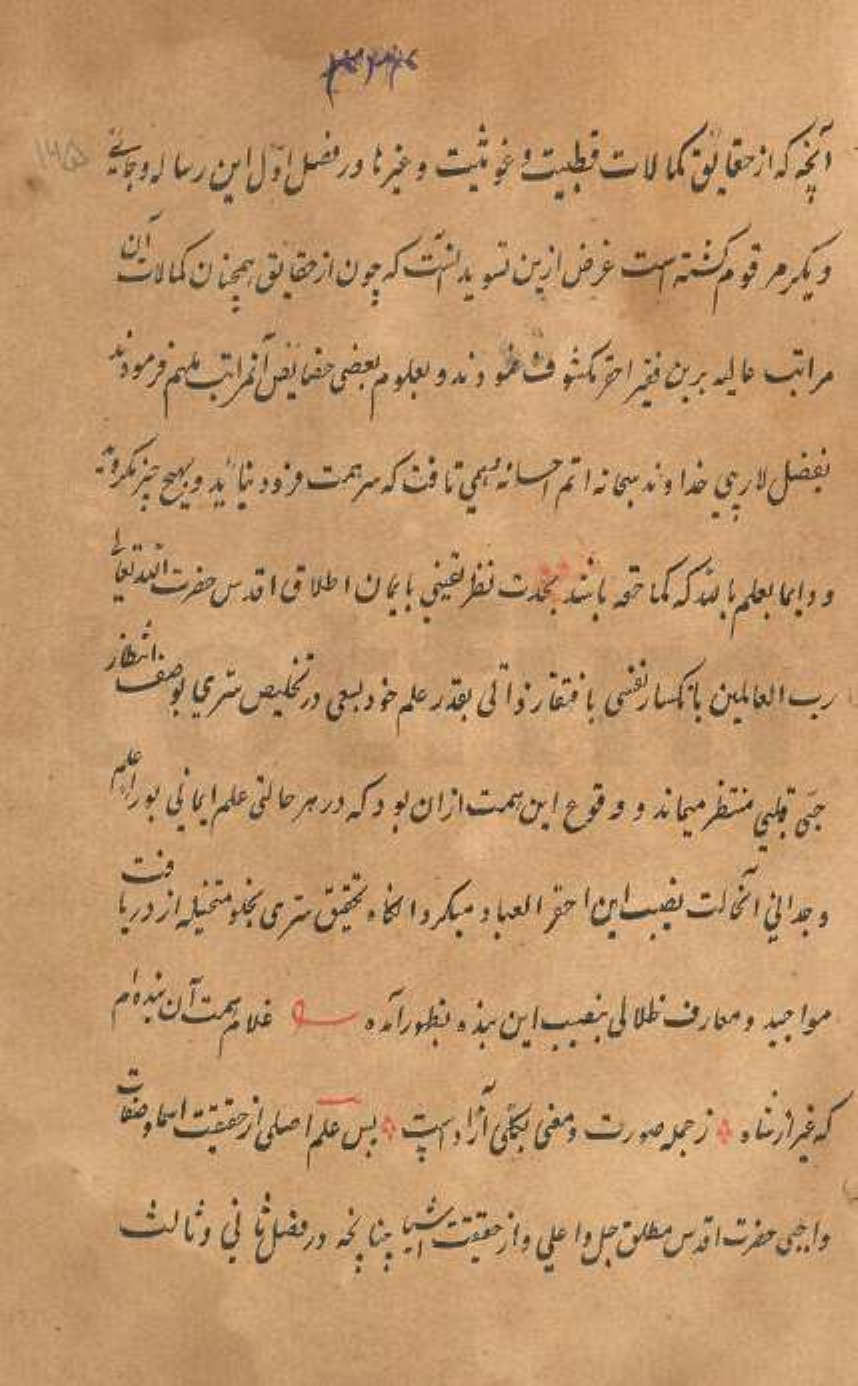 ۱۴۵
آنچه که از حقایق کمالات قطبیت و غوثیت و غیرها در فصل اول این رساله و جائے
دیگر مرقوم گشته است غرض ازین تسوید آنست که چون از حقایق همچنان کمالات آن
مراتب عالیه برین فقیر احقر مکشوف نمودند و بعلوم بعضی حقایق آنمراتب ملهم فرمودند
بفضل لاریبی خداوند سبحانه اتم احسانه همتی تافت که سر همت فرود نیاید و بهیچ چیز نگروید
و دایما بعلم بالله که کما حقه باشد بحدت نظر یقینی بایمان اطلاق اقدس حضرت الله تعالی
رب العالمین بانکسار نفسی بافتقار ذاتی بقدر علم خود بسعی در تخلیص سرّی بوصف انتظار
حبّی قلبی منتظر میماند و وقوع این همت ازان بود که در هر حالتی علم ایمانی بورای علم
وجدانی آنحالت نصیب این احقر العباد میکرد آنگاه بتحقیق سرّی بخلو متخیله از دریافت
مواجید و معارف ظلالی بنصیب این بنده بظهور آمده غلام همت آن بنده‌ام
که غیر از شاه ز جمله صورت و معنی بکلّی آزاد است پس علم اصلی از حقیقت اسما و صفات
واجبی حضرت اقدس مطلق جل و اعلی و از حقیقت اشیا چنانچه در فصل ثانی و ثالث